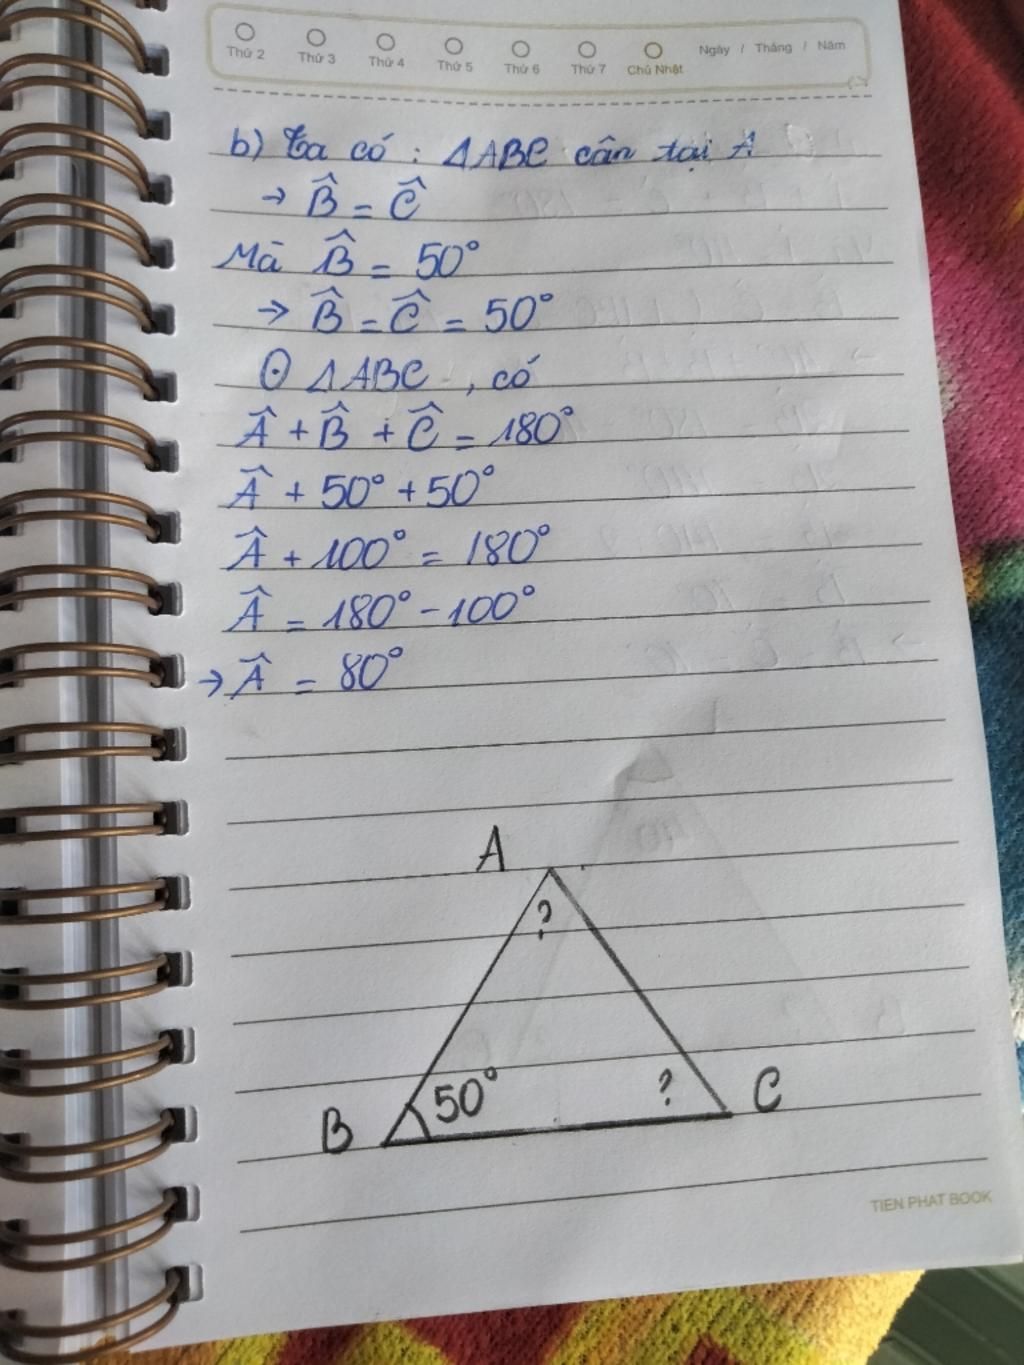 Thứ 2 Thứ 3 Thứ 4 Thứ 5 Thứ 6 Thứ 7 Chủ Nhật Ngày / Tháng / Năm
b) Ta có : ΔABC cân tại A
→ B̂ = Ĉ
Mà B̂ = 50°
→ B̂ = Ĉ = 50°
⊙ ΔABC , có
Â + B̂ + Ĉ = 180°
Â + 50° + 50°
Â + 100° = 180°
Â = 180° - 100°
→ Â = 80°
A
?
B 50° ? C
TIEN PHAT BOOK